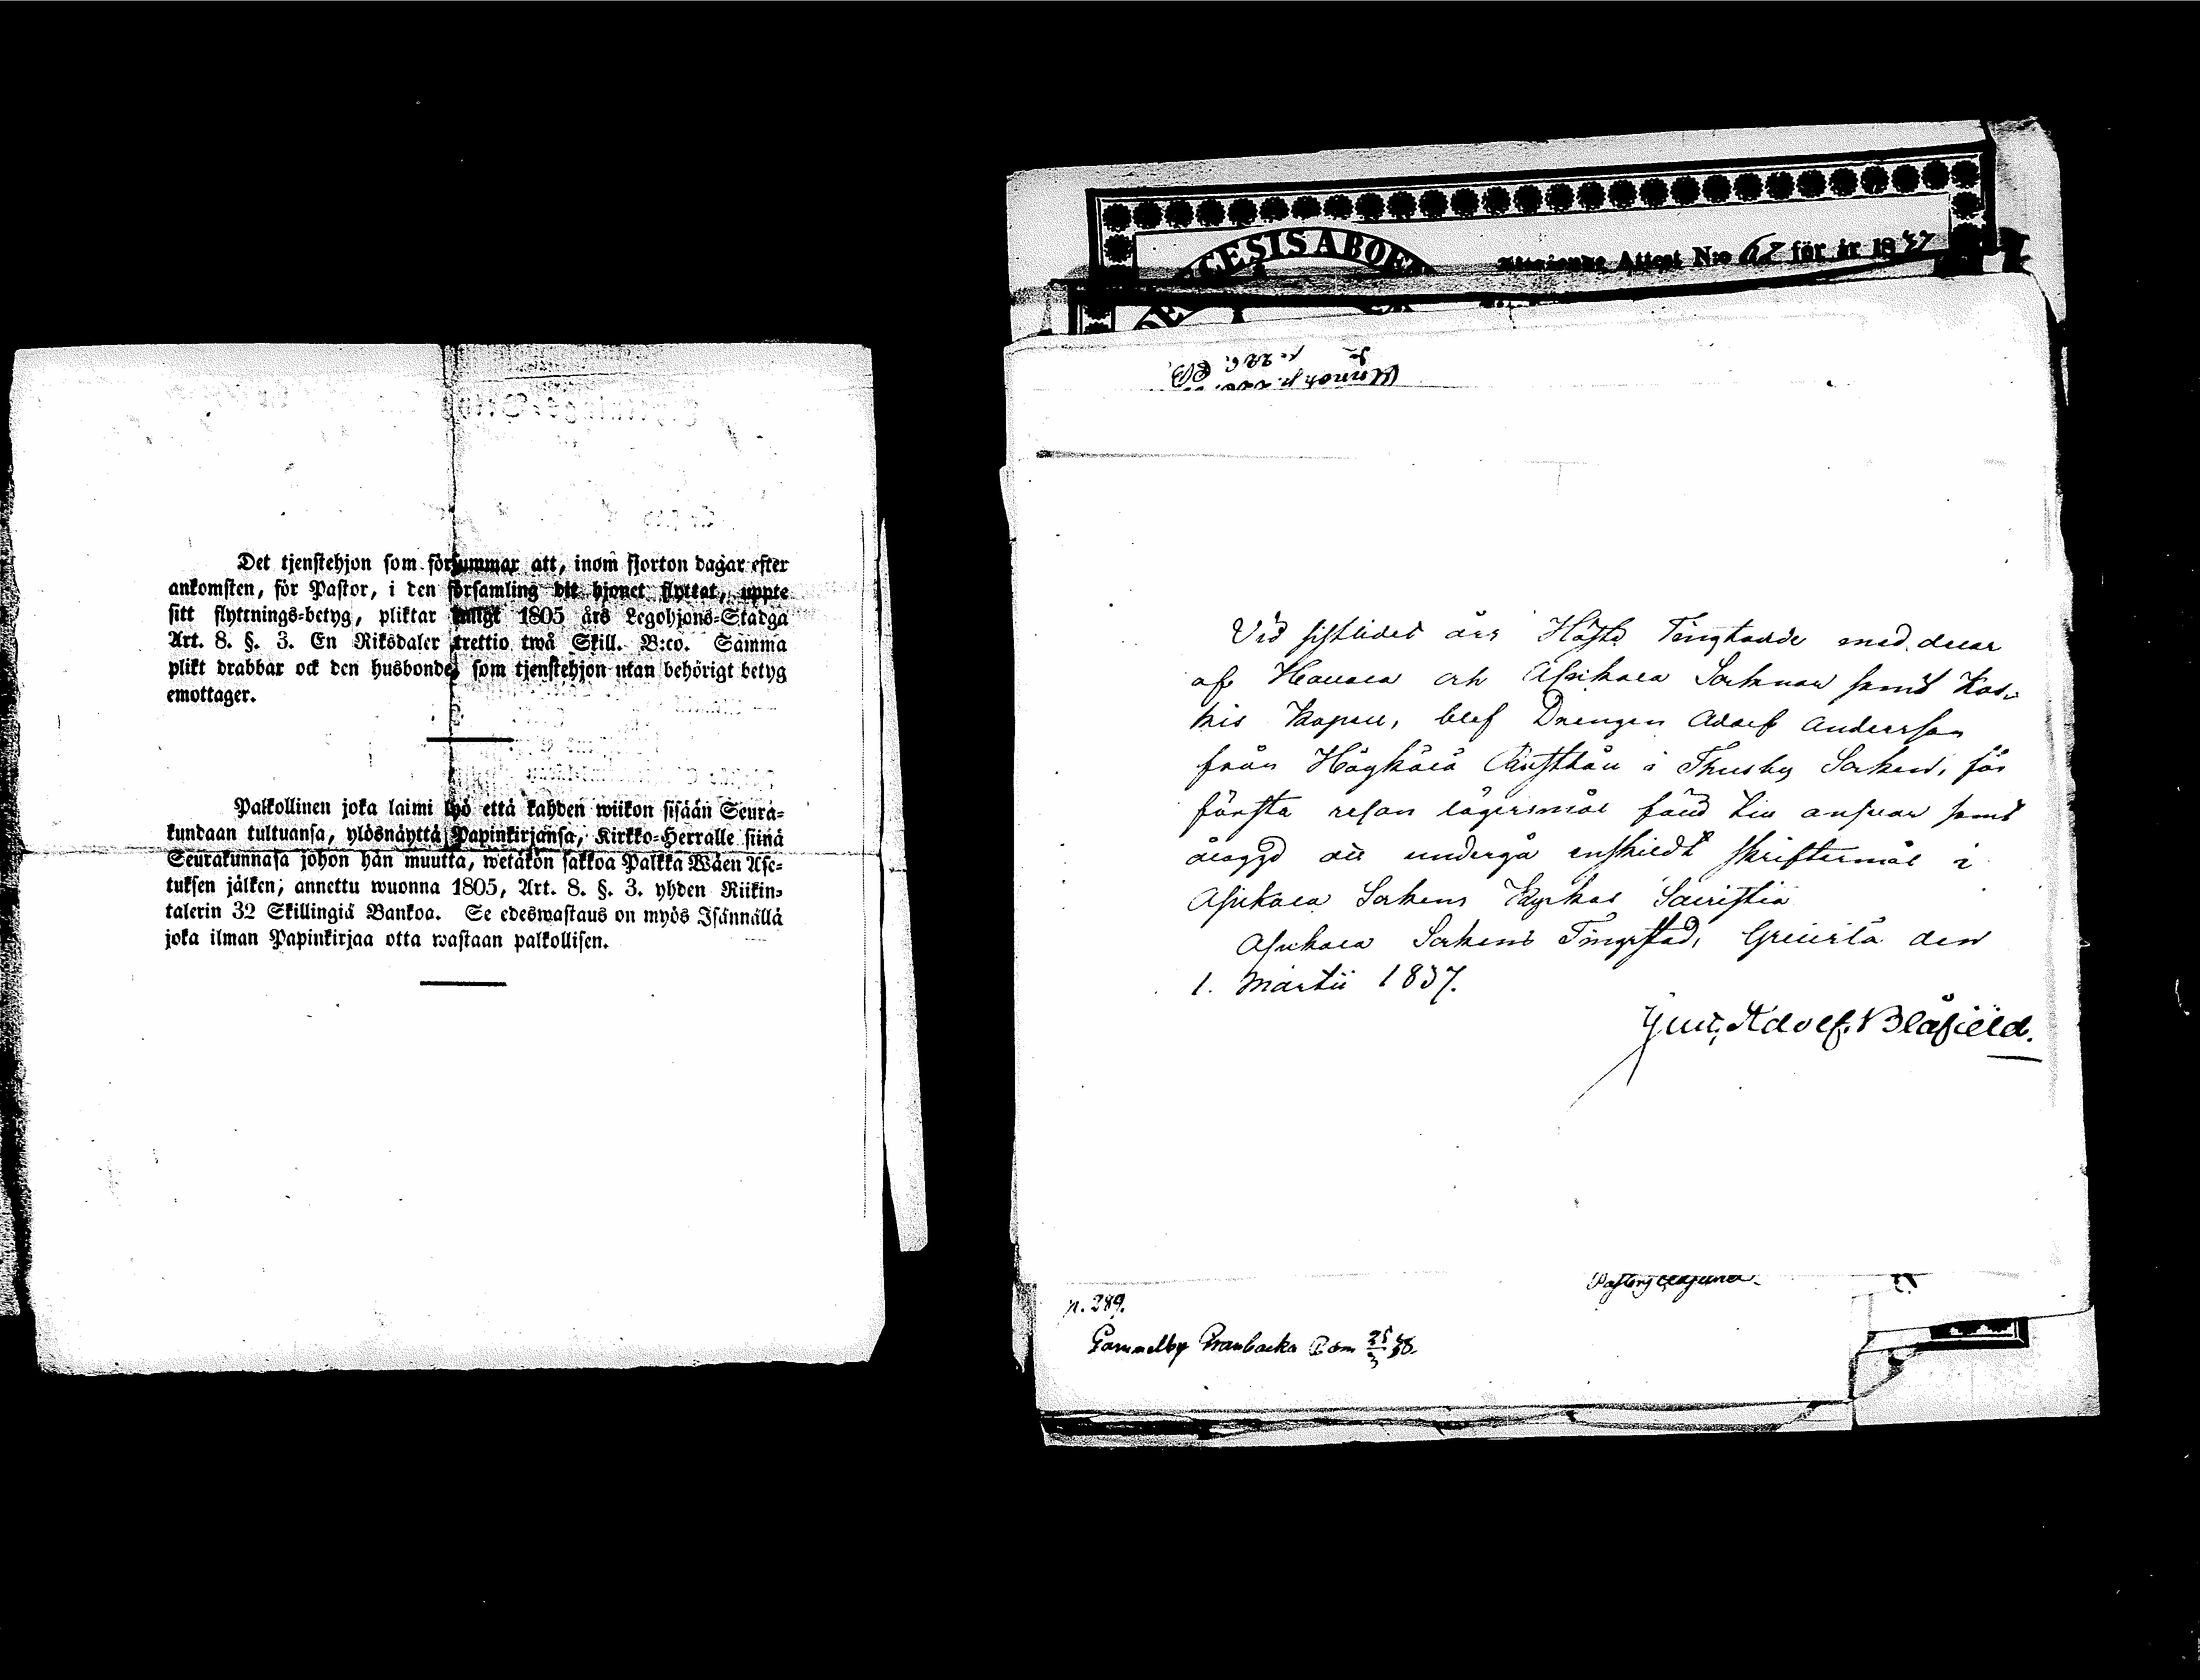 Det tjenstehjon som försummar att, inom fjorton dagar efter
ankomsten, för Pastor, i den församling dit hjonet flyttat, uppte
sitt flyttnings-betyg, pliktar enligt 1805 års Legohjons-Stadga
Art. 8. §. 3. En Riksdaler trettio två Skill. B:co. Samma
plikt drabbar ock den husbonde, som tjenstehjon utan behörigt betyg
emottager.
Palkollinen joka laimi lyö että kahden wiikon sisään Seura-
kundaan tultuansa, ylösnäyttä Papinkirjansa, Kirkko-Herralle siinä
Seurakunnasa johon hän muutta, wetäkön sakkoa Palkka Wäen Ase-
tuksen jälken, annettu wuonna 1805, Art. 8. §. 3. yhden Riikin-
talerin 32 Skillingiä Bankoa. Se edeswastaus on myös Isännällä
joka ilman Papinkirjaa otta wastaan palkollisen.
CESIS ABOE
Attest N:o 62 för år 1837
p. 226.
Vid sistledet års Höste Ting med delar
af och Asikala Socknar samt Kos-
kis Kapell, blef Drengen Adolf Andersson
från Högkålä Rusthåll i Thusby Socken, för
första resan lägersmål fäld till ansvar samt
ålaggd att undergå enskildt skriftermål i
Asikala Sockens Kyrkas Sacristia
Asikala Sockens Tingstad, den
1. Martii 1837.
Gust. Adolf. Blåfield.
p. 289.
Gammelby 25/3 38.